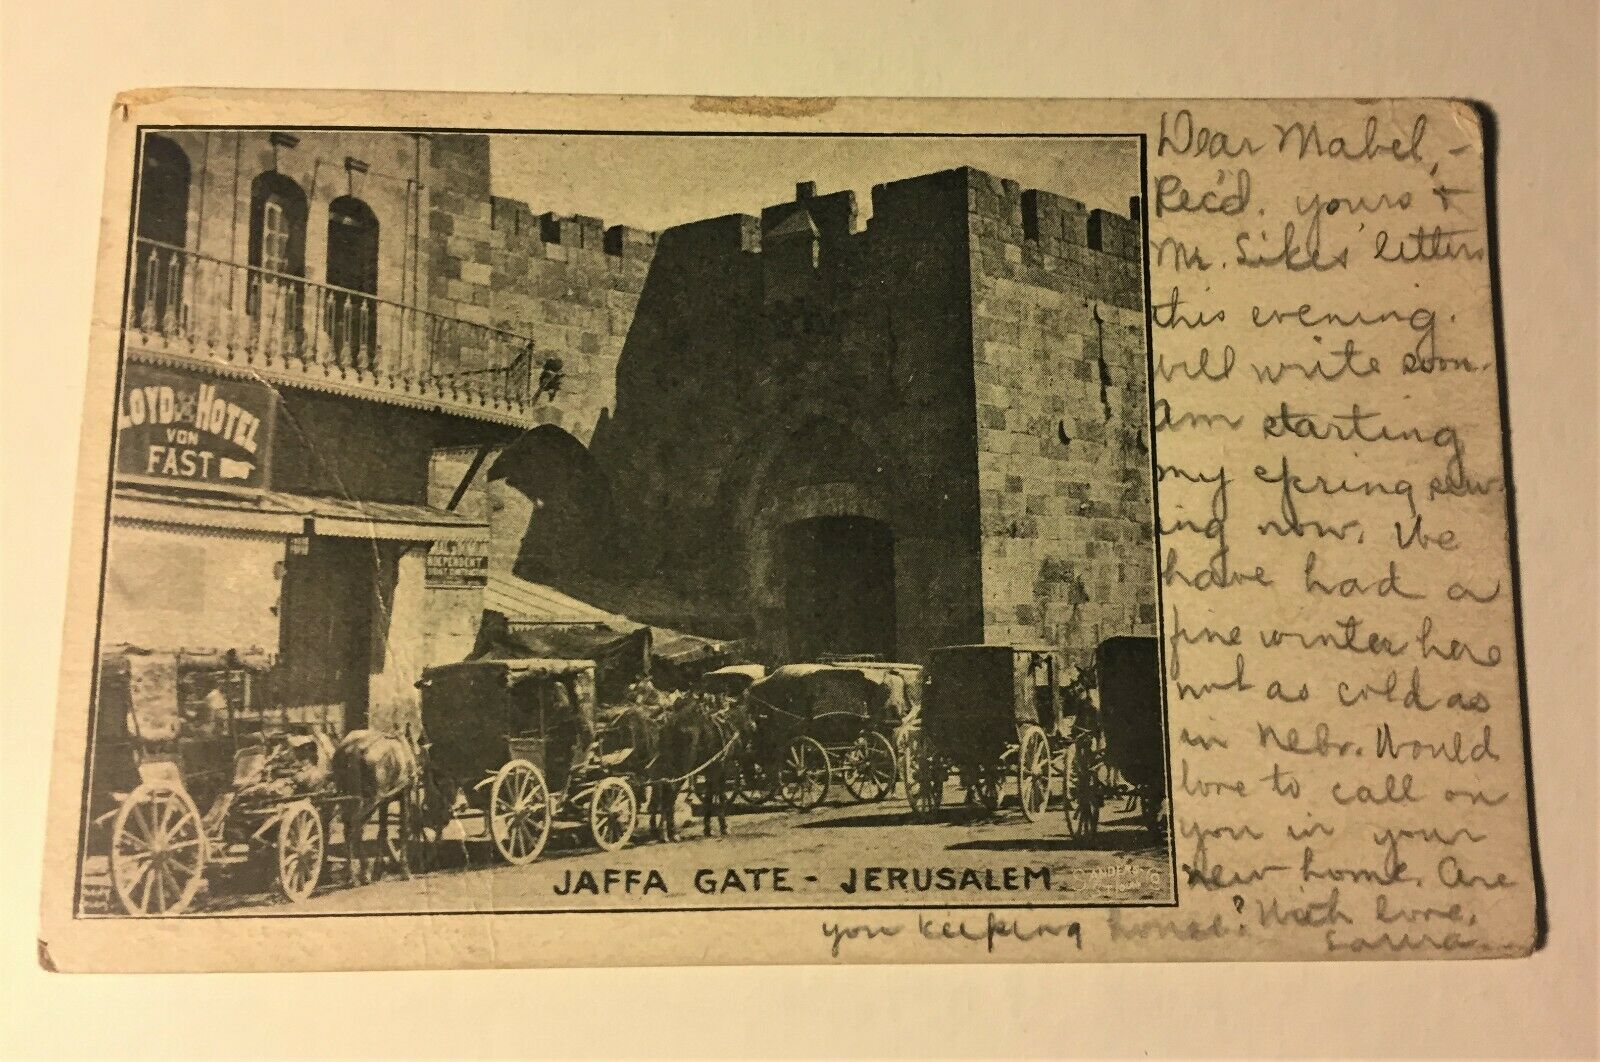 LOYD HOTEL
VON
FAST
INDEPENDENT
JAFFA GATE - JERUSALEM.
Dear Mabel,-
Rec'd. yours +
Mr. Sikes' letters
this evening.
Will write soon.
Am starting
my spring sew-
ing now. We
have had a
fine winter here
not as cold as
in Nebr. Would
love to call on
you in your
new home. Are
you keeping house? With love,
Laura